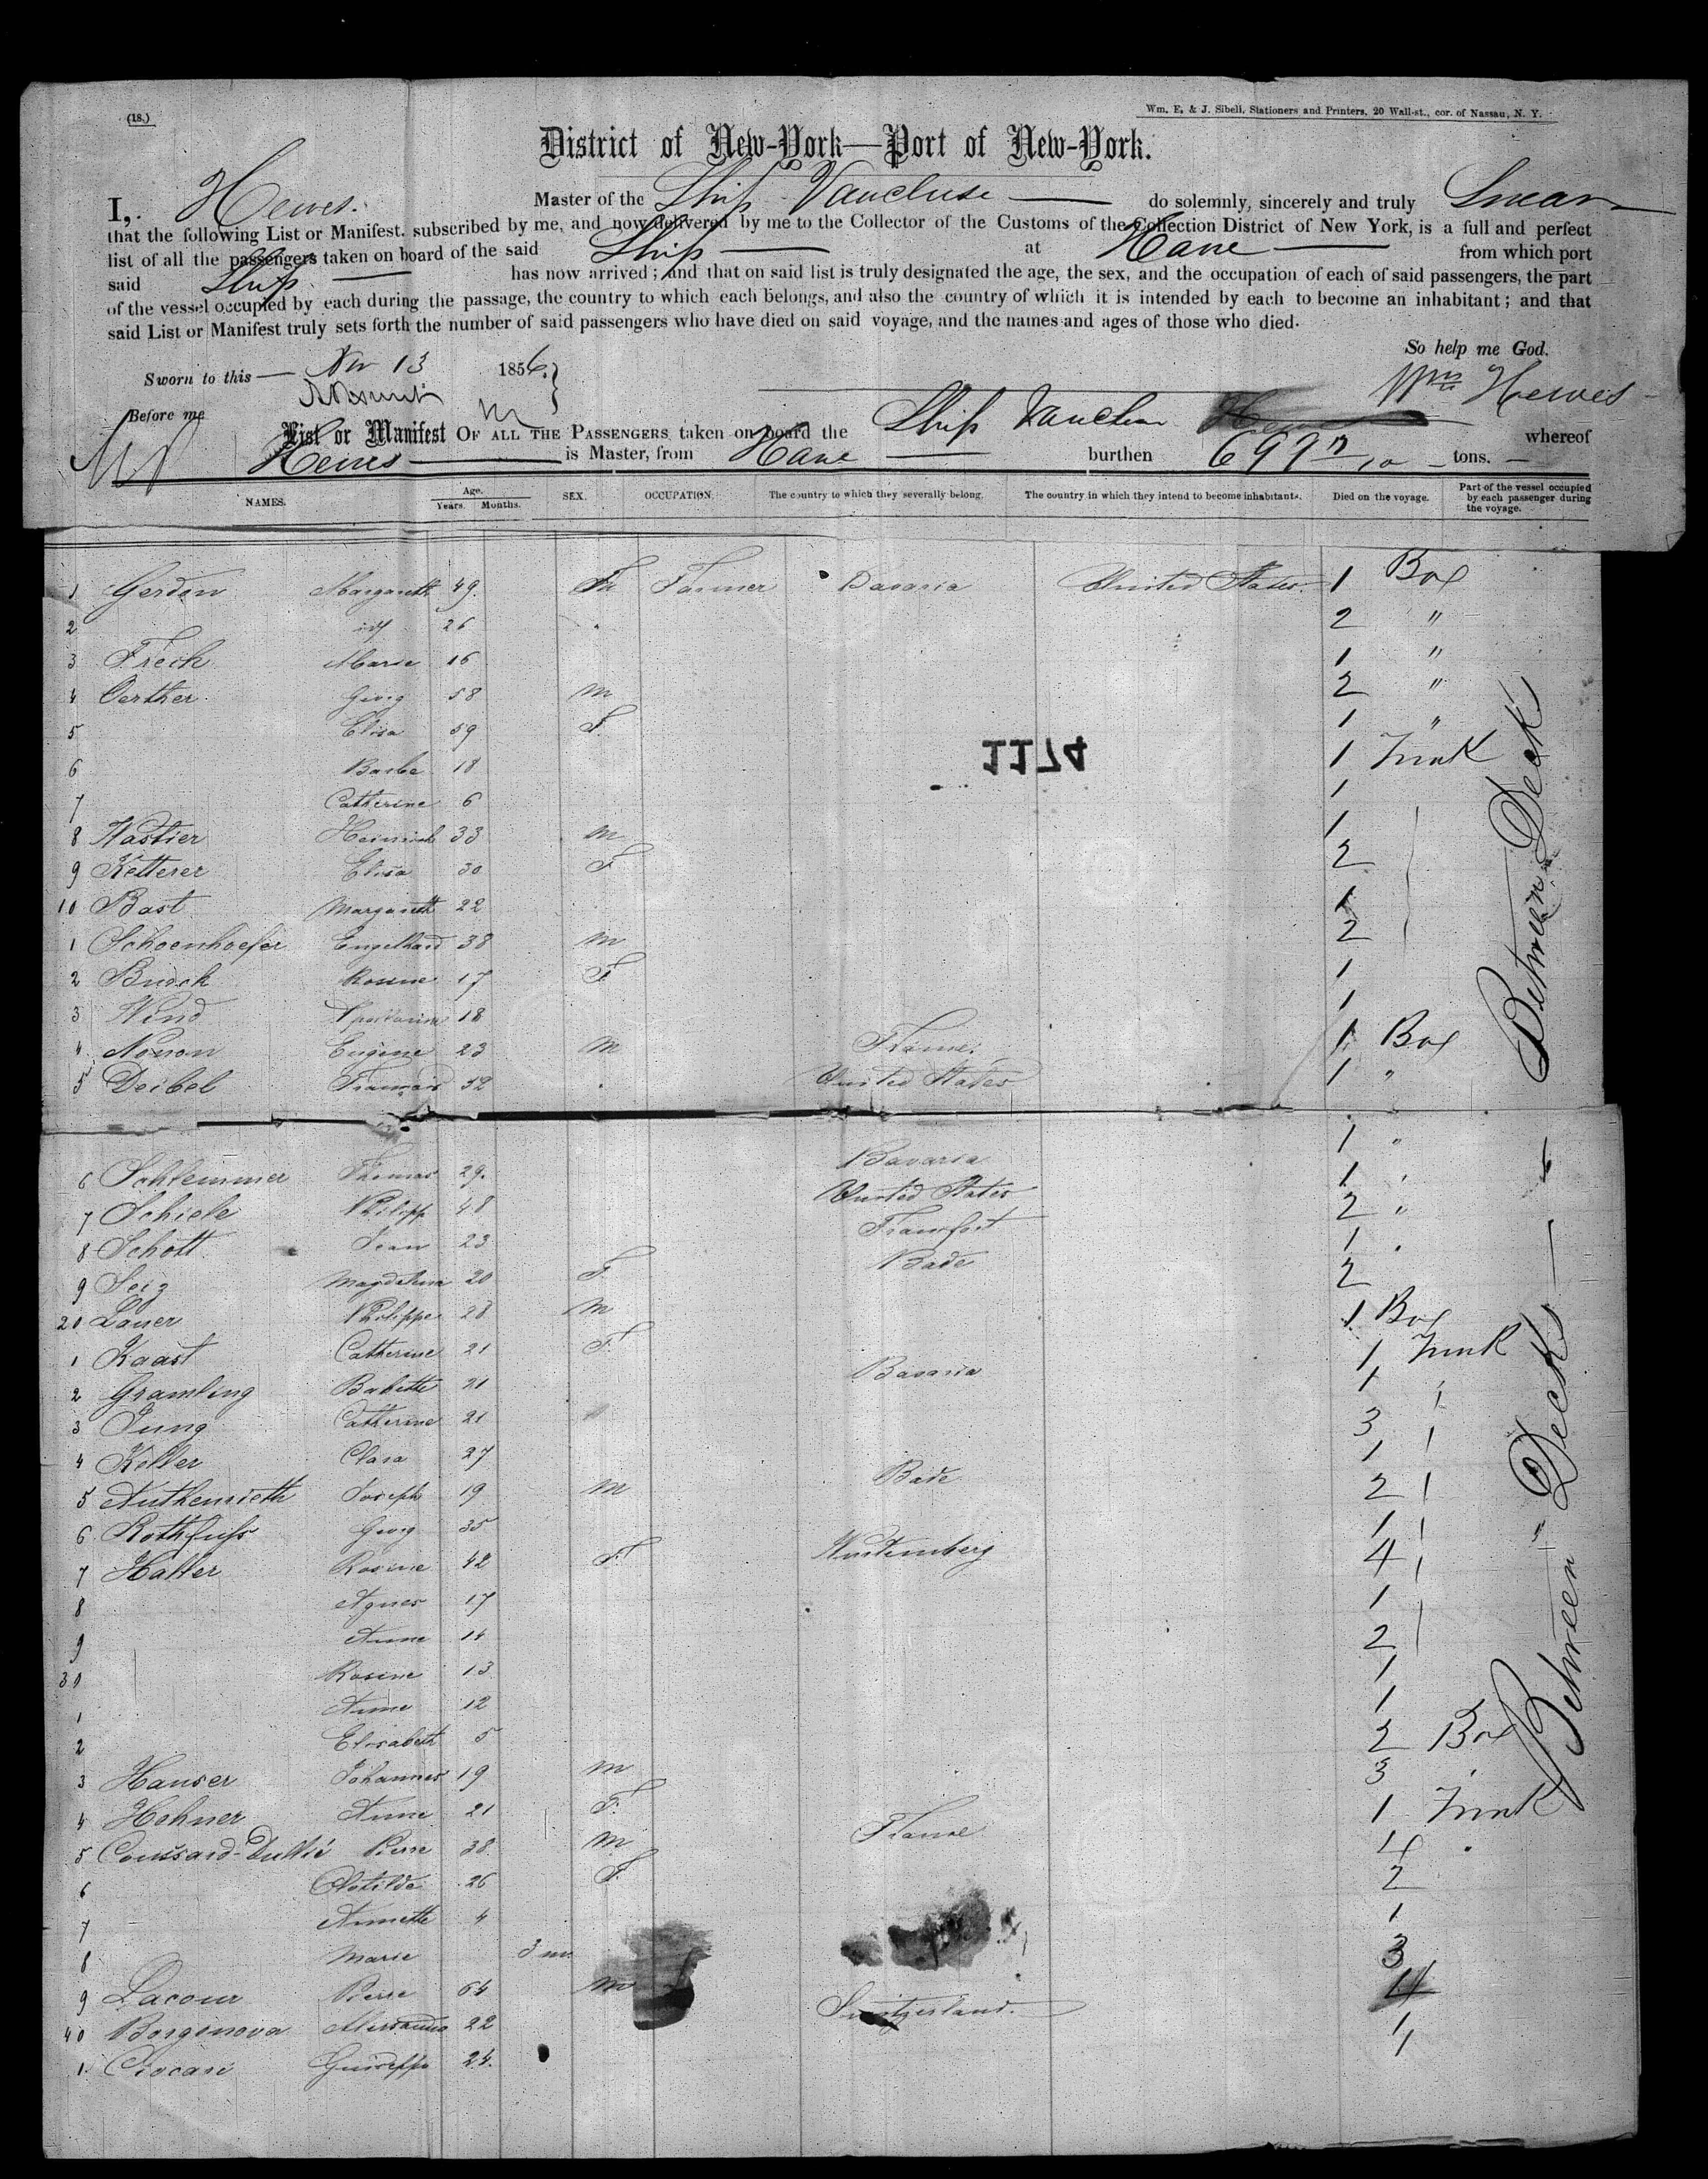 (18.)
Wm. E. & J. Sibell, Stationers and Printers, 20 Wall-st., cor. of Nassau, N. Y.
District of New-York—Port of New-York.
I, Hewes. Master of the Ship Vaucluse do solemnly, sincerely and truly Swear
that the following List or Manifest, subscribed by me, and now delivered by me to the Collector of the Customs of the Collection District of New York, is a full and perfect
list of all the passengers taken on board of the said Ship at Havre from which port
said Ship has now arrived; and that on said list is truly designated the age, the sex, and the occupation of each of said passengers, the part
of the vessel occupied by each during the passage, the country to which each belongs, and also the country of which it is intended by each to become an inhabitant; and that
said List or Manifest truly sets forth the number of said passengers who have died on said voyage, and the names and ages of those who died.
So help me God.
Sworn to this Nov 13 1856. Wm Hewes
Before me
List or Manifest OF ALL THE PASSENGERS taken on board the Ship Vaucluse whereof
Hewes is Master, from Havre burthen 697 tons.
NAMES. Age. Years. Months. SEX. OCCUPATION. The country to which they severally belong. The country in which they intend to become inhabitants. Died on the voyage. Part of the vessel occupied by each passenger during the voyage.
1 Gerdon Margareth 49. Fm Farmer Bavaria United States. 1 Box
2 id 26 2 "
3 Frech Marie 16 1 "
4 Oerther Georg 58 m 2 "
5 Elisa 59 F. 1 "
6 Barbe 18 1 Trunk
7 Catherine 6 1
1174
8 Wastier Heinrich 33 m 1
9 Ketterer Elisa 30 F 2
10 Bast Margareth 22 1
1 Schoenhoefer Engelhard 38 m 2
2 Burck Rosine 17 F 1
3 Wend 18 1
4 Nonon Eugène 23 m France. 1 Box
5 Deibel François 52 United States 1 "
Between Decks
6 Schlemmer Thomas 29. Bavaria 1 "
7 Schiele Philipp 48 United States 1 "
8 Schott Jean 23 Francfort 2 "
9 Seiz Magdalena 20 F. Bade 1
20 Lauer Philippe 28 m 2
1 Kaast Catherine 21 F. 1 Box
2 Gramling Babette 21 Bavaria 1 Trunk
3 Jung Catherine 21 1
4 Keller Clara 27 3
5 Authenrieth Joseph 19 m Bade 1
6 Rothfuss Georg 35 2
7 Haller Rosine 42 F. Wurtemberg 1
8 Agnes 17 4
9 Anne 14 1
30 Rosine 13 2
1 Anna 12 1
2 Elisabeth 5 1
3 Hauser Johannes 19 m 2 Box
4 Hohner Anne 21 F. 3
5 Coussard-Dullié Pierre 38. m France 1 Trunk
6 Clotilde 26 F. 4
7 Annette 4 2
8 Marie 3 m. 1
9 Lacour Pierre 64 m 3
40 Borgonova Alessandro 22 Switzerland. 1
1. Ciocari Guiseppe 24. 1
Between Decks